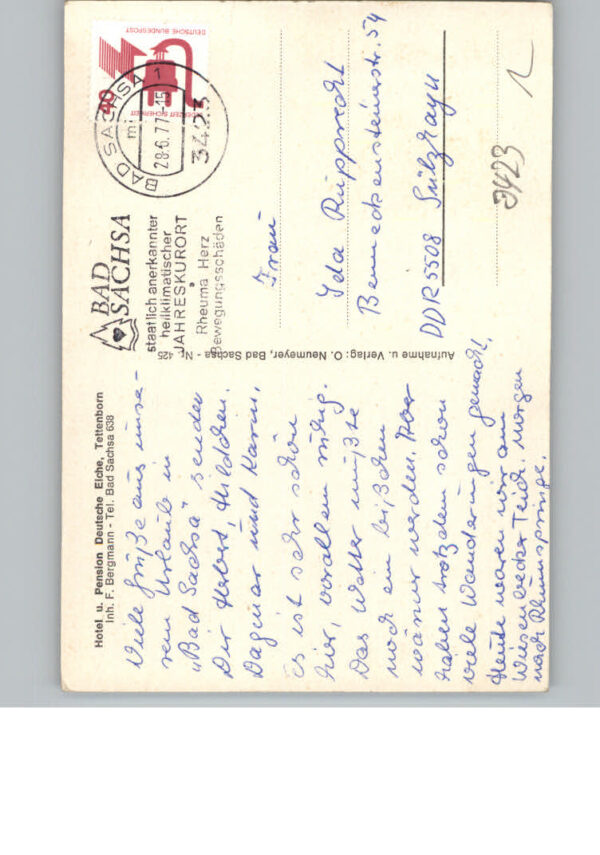 Hotel u. Pension Deutsche Eiche, Tettenborn
Inh. F. Bergmann - Tel. Bad Sachsa 638
Viele Grüße aus unse-
rem Urlaub in
„Bad Sachsa" senden
Dir Herbert, Hildchen,
Dagmar und Karin,
es ist sehr schön
hier, vorallem ruhig.
Das Wetter müßte
noch ein bißchen
wärmer werden. Aber
haben trotzdem schon
viele Wanderungen gemacht,
Heute waren wir am
Wiesenbecker Teich. Morgen
nach Rhumspringe.
Aufnahme u. Verlag: O. Neumeyer, Bad Sachsa - Nr. 425
BAD
SACHSA
staatlich anerkannter
heilklimatischer
JAHRESKURORT
Rheuma Herz
Bewegungsschäden
BAD SACHSA 1
mi
28.6.77-15
3423
DEUTSCHE BUNDESPOST
40
JEDERZEIT SICHERHEIT
Frau
Ida Rupprecht
Benneckensteinerstr. 54
DDR 5508 Sülzhayn
3423